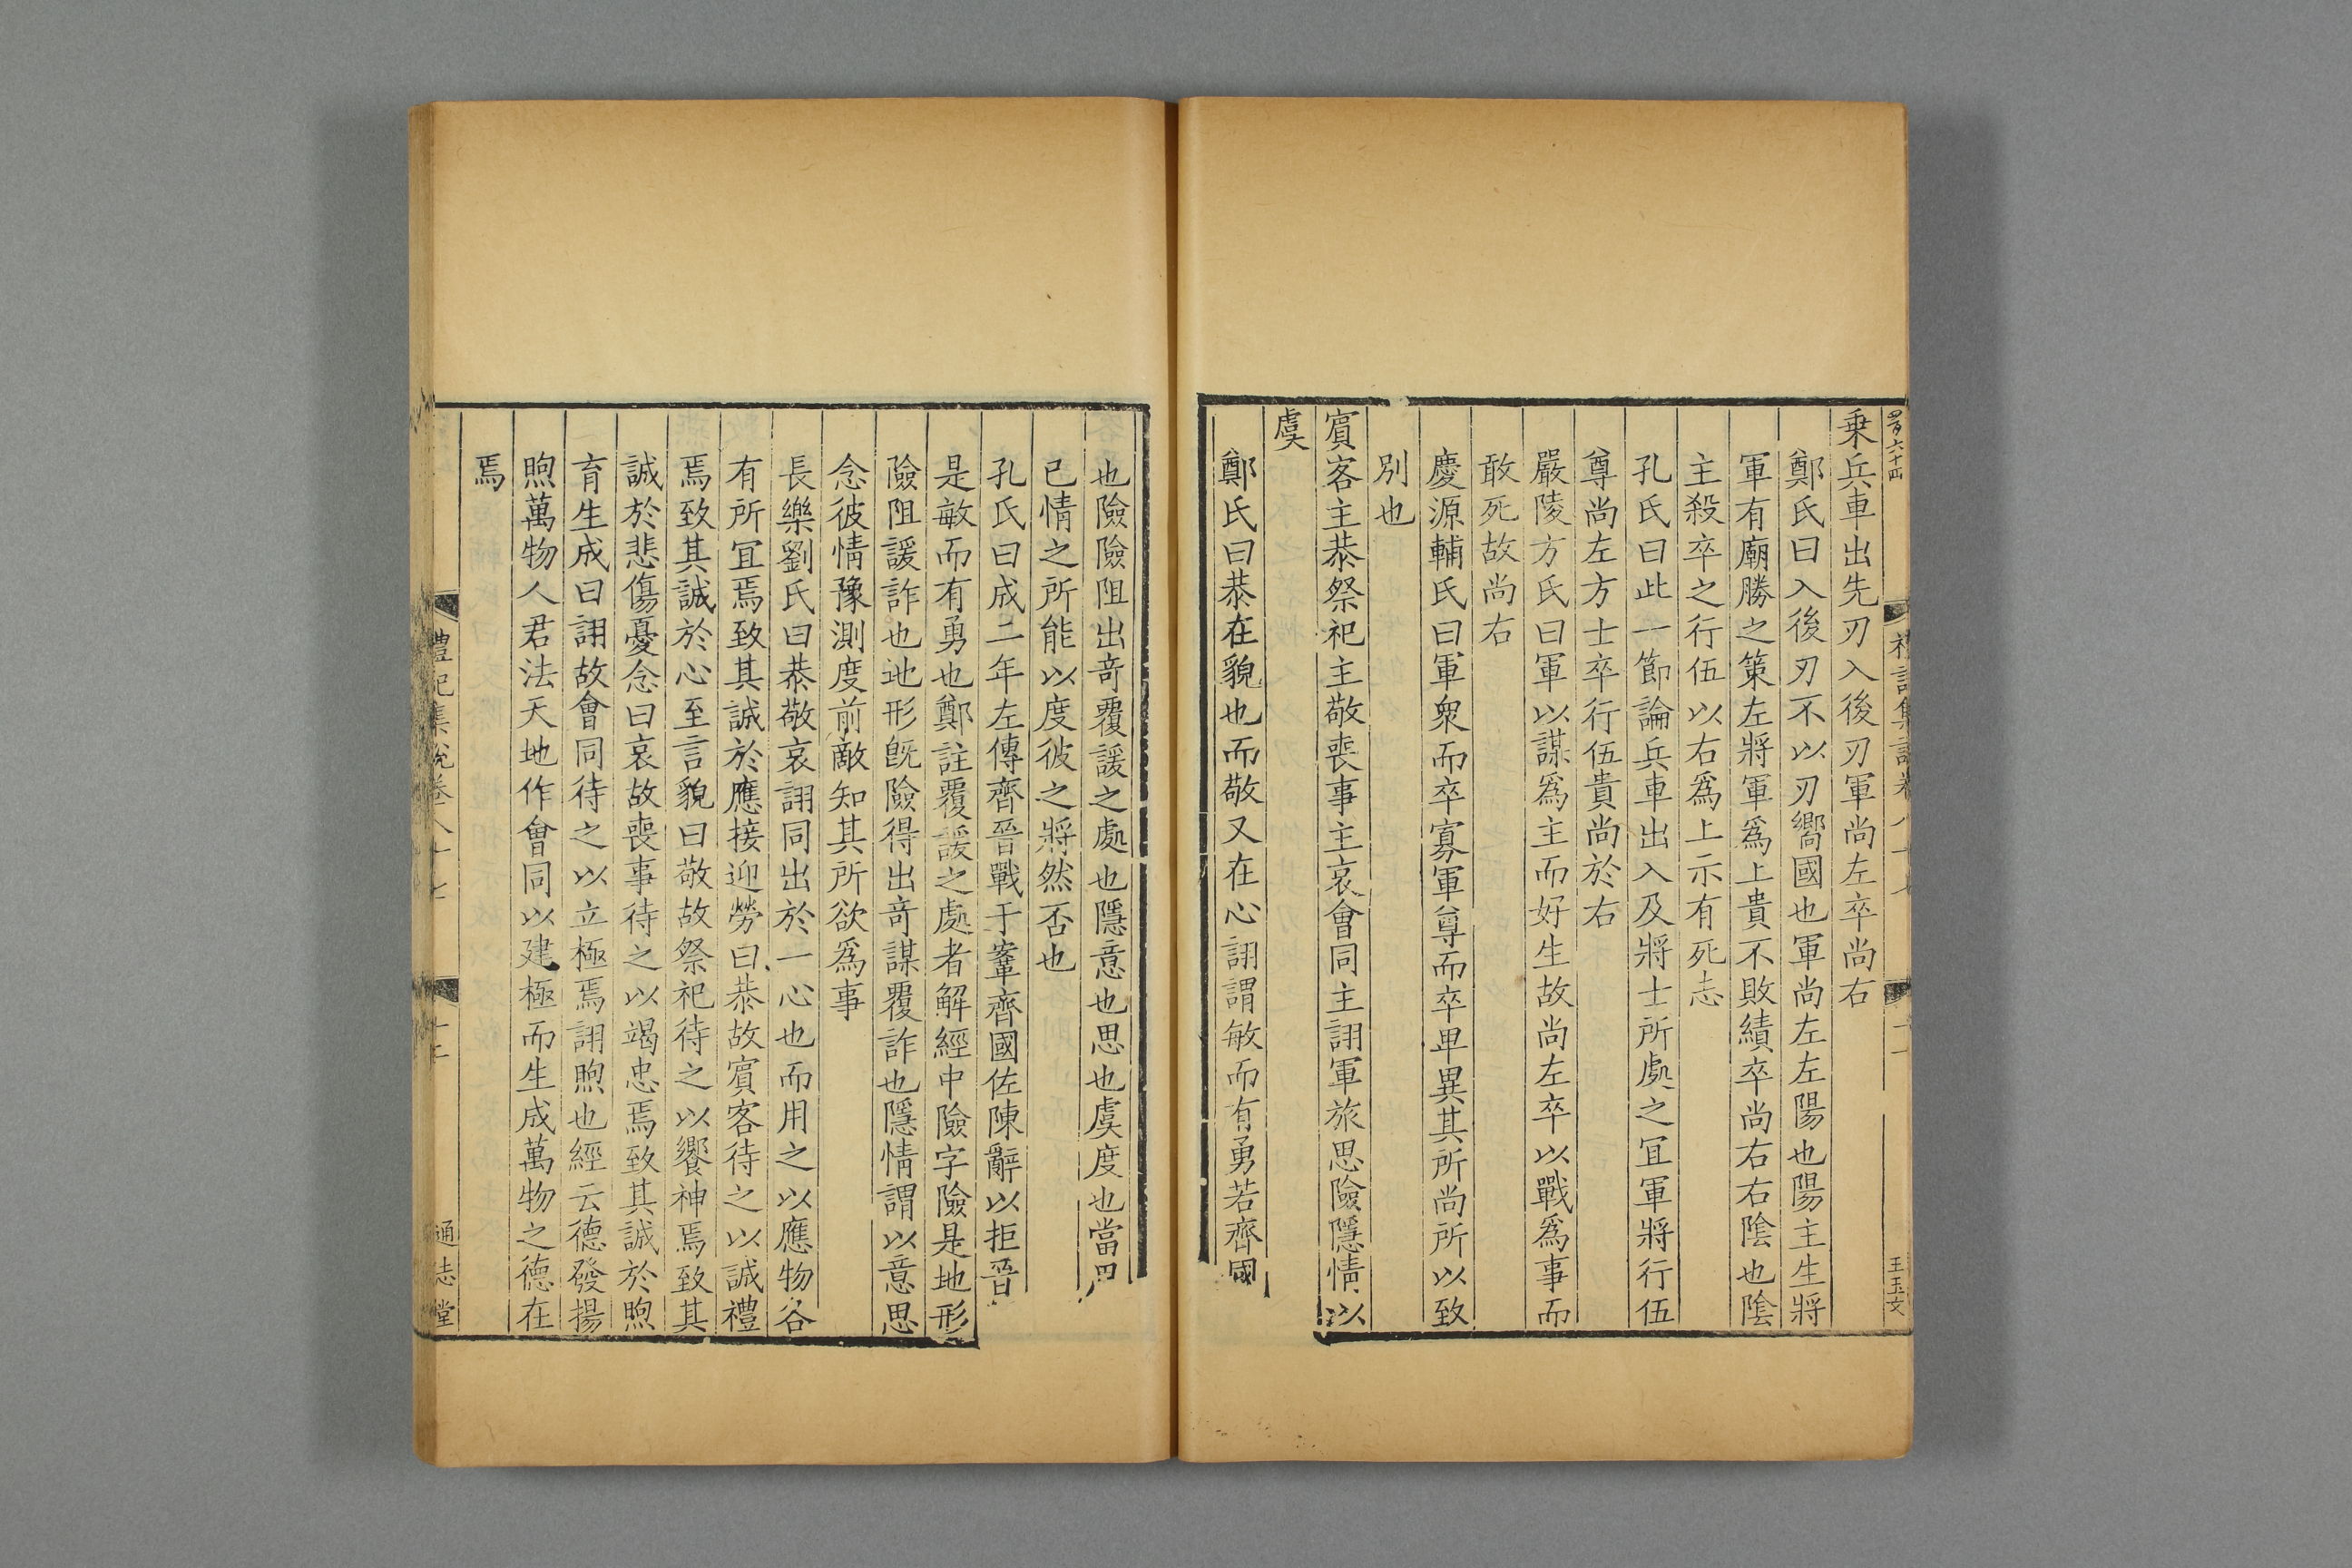 乗兵車出先刃入後刃軍尚左卒尚右
鄭氏曰入後刃不以刃嚮國也軍尚左左陽也陽主生將
軍有廟勝之策左將軍爲上貴不敗績卒尚右右陰也陰
主殺卒之行伍以右爲上示有死志
孔氏曰此一節論兵車出入及將士所處之冝軍將行伍
尊尚左方士卒行伍貴尚於右
嚴陵方氏曰軍以謀爲主而好生故尚左卒以戰爲事而
敢死故尚右
慶源輔氏曰軍衆而卒寡軍尊而卒卑異其所尚所以致
別也
賔客主恭祭祀主敬喪事主哀會同主詡軍旅思險隱情以
虞
鄭氏曰恭在貌也而敬又在心詡謂敏而有勇若齊國
也險險阻出竒覆諼之處也隱意也思也虞度也當
已情之所能以度彼之將然否也
孔氏曰成二年左傳齊晉戰于鞌齊國佐陳辭以拒晉
是敏而有勇也鄭註覆諼之處者解經中險字險是地形
險阻諼詐也地形旣險得出竒謀覆詐也隱情謂以意思
念彼情豫測度前敵知其所欲爲事
長樂劉氏曰恭敬哀詡同出於一心也而用之以應物各
有所冝焉致其誠於應接迎勞曰恭故賔客待之以誠禮
焉致其誠於心至言貌曰敬故祭祀待之以饗神焉致其
誠於悲傷憂念曰哀故喪事待之以竭忠焉致其誠於煦
育生成曰詡故會同待之以立極焉詡煦也經云德發揚
煦萬物人君法天地作會同以建極而生成萬物之德在
焉
禮記集說卷八十七
十二
通志堂